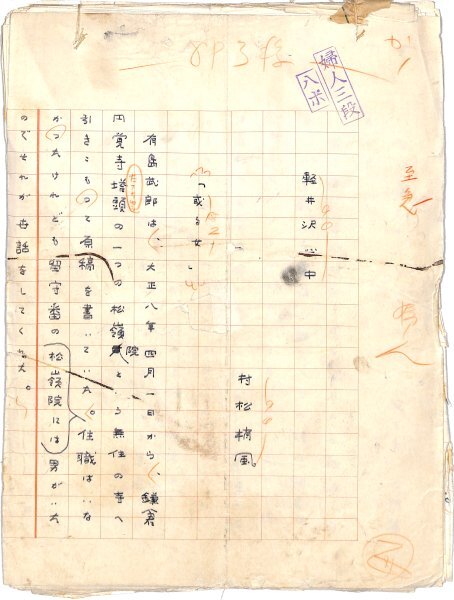 至急
婦人三段
八ポ
軽井沢心中
村松梢風。
一
「或る女」
有島武郎は、大正八年四月一日から、鎌倉
円覚寺塔頭の一つの松嶺院という無住の寺へ
引きこもって原稿を書いていた。住職はいな
かったけれども留守番の松嶺院には男がいた
のでそれが世話をしてくれた。